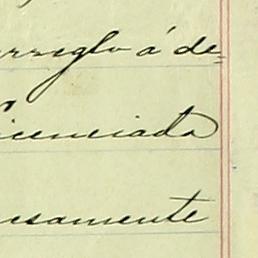 arreglo á de=
licenciada
esamente